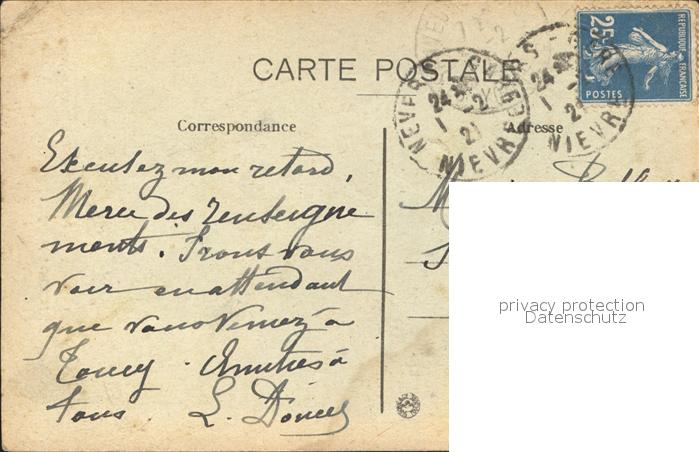 CARTE POSTALE
RÉPUBLIQUE FRANÇAISE
25c
POSTES
NEVERS
24
1 - 2
21
NIEVRE
NEVERS
24
1
21
NIEVRE
Correspondance
Adresse
Excusez mon retard,
Merci des renseigne
ments. Irons vous
voir en attendant
que vous veniez à
Toucy. Amitiés à
tous. L.
privacy protection
Datenschutz